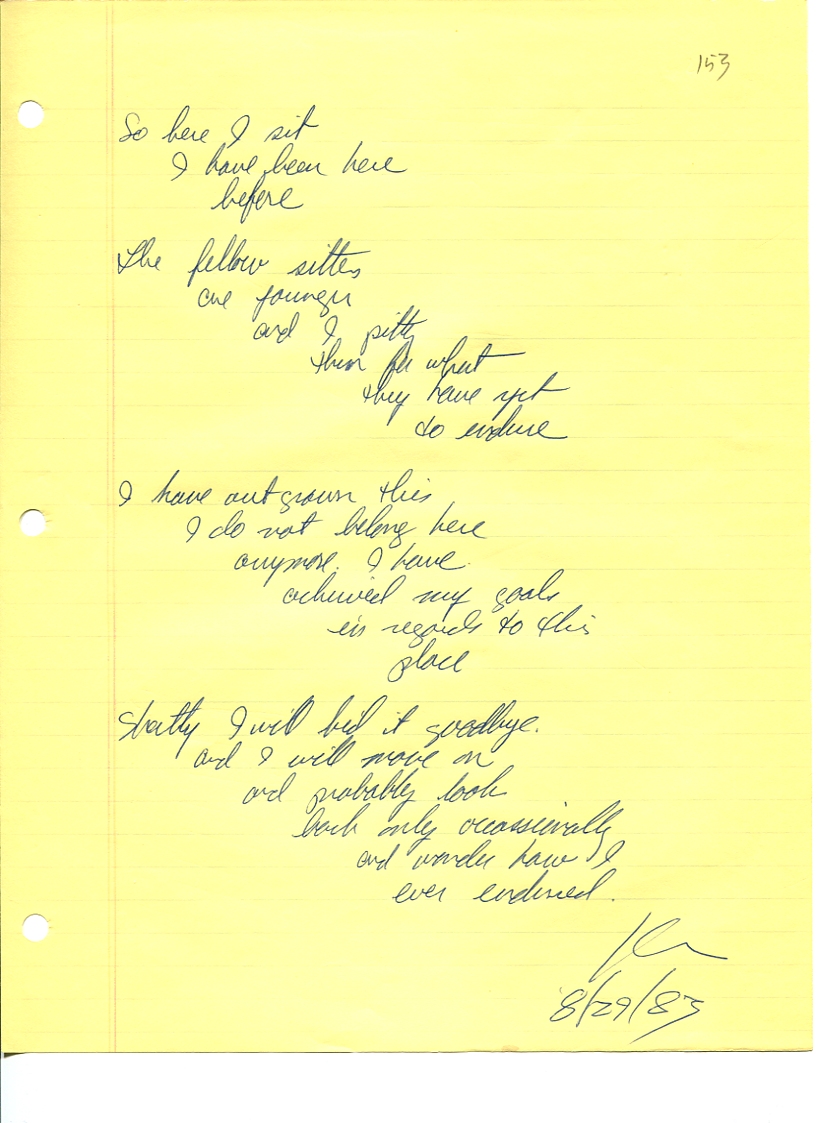 153
So here I sit
I have been here
before
The fellow sitters
are younger
and I pitty
them for what
they have yet
to endure
I have outgrown this
I do not belong here
anymore. I have
achieved my goals
in regards to this
place
Shortly I will bid it goodbye.
and I will move on
and probably look
back only occassionally
and wonder how I
ever endured.
8/29/83